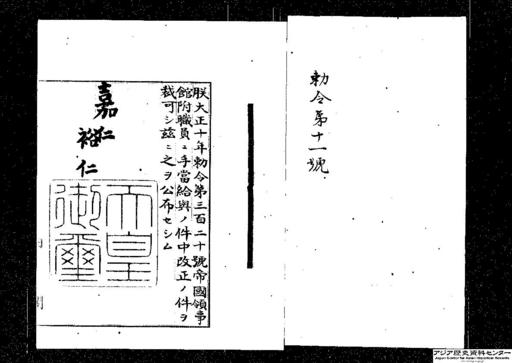 勅令第十一號
朕大正十年勅令第三百二十號帝國領事
館附職員ニ手當給與ノ件中改正ノ件ヲ
裁可シ茲ニ之ヲ公布セシム
嘉仁
裕仁
天皇
御璽
アジア歴史資料センター
Japan Center for Asian Historical Records